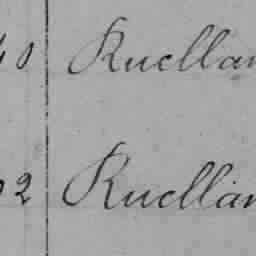 40 Ruellan
02 Ruellan